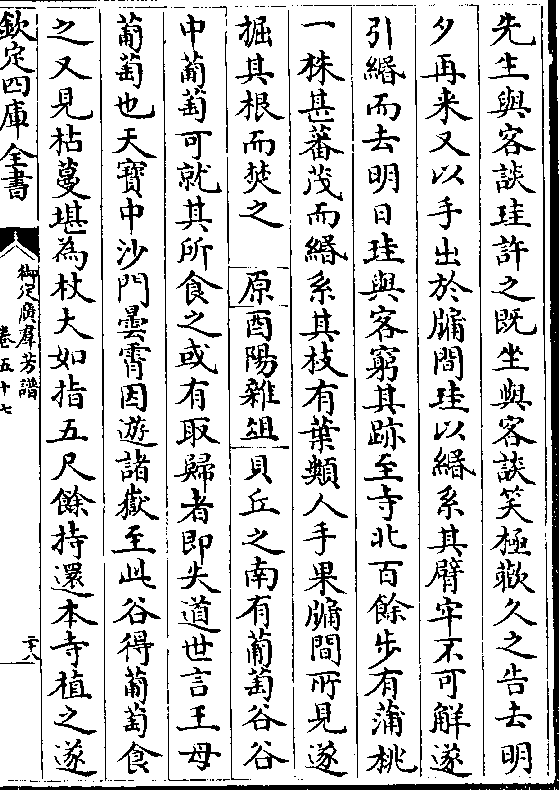 先生與客談珪許之既坐與客談笑極歡久之告去明
夕再来又以手出於牖間珪以緡系其臂牢不可解遂
引緡而去明日珪與客窮其跡至寺北百餘步有蒲桃
一株甚蕃茂而緡系其枝有葉類人手果牖間所見遂
掘其根而焚之　原酉陽雜俎貝丘之南有葡萄谷谷
中葡萄可就其所食之或有取歸者即失道世言王母
葡萄也天寶中沙門曇霄因遊諸嶽至此谷得葡萄食
之又見枯蔓堪為杖大如指五尺餘持還本寺植之遂
欽定四庫全書
御定廣群芳譜
卷五十七
二十八